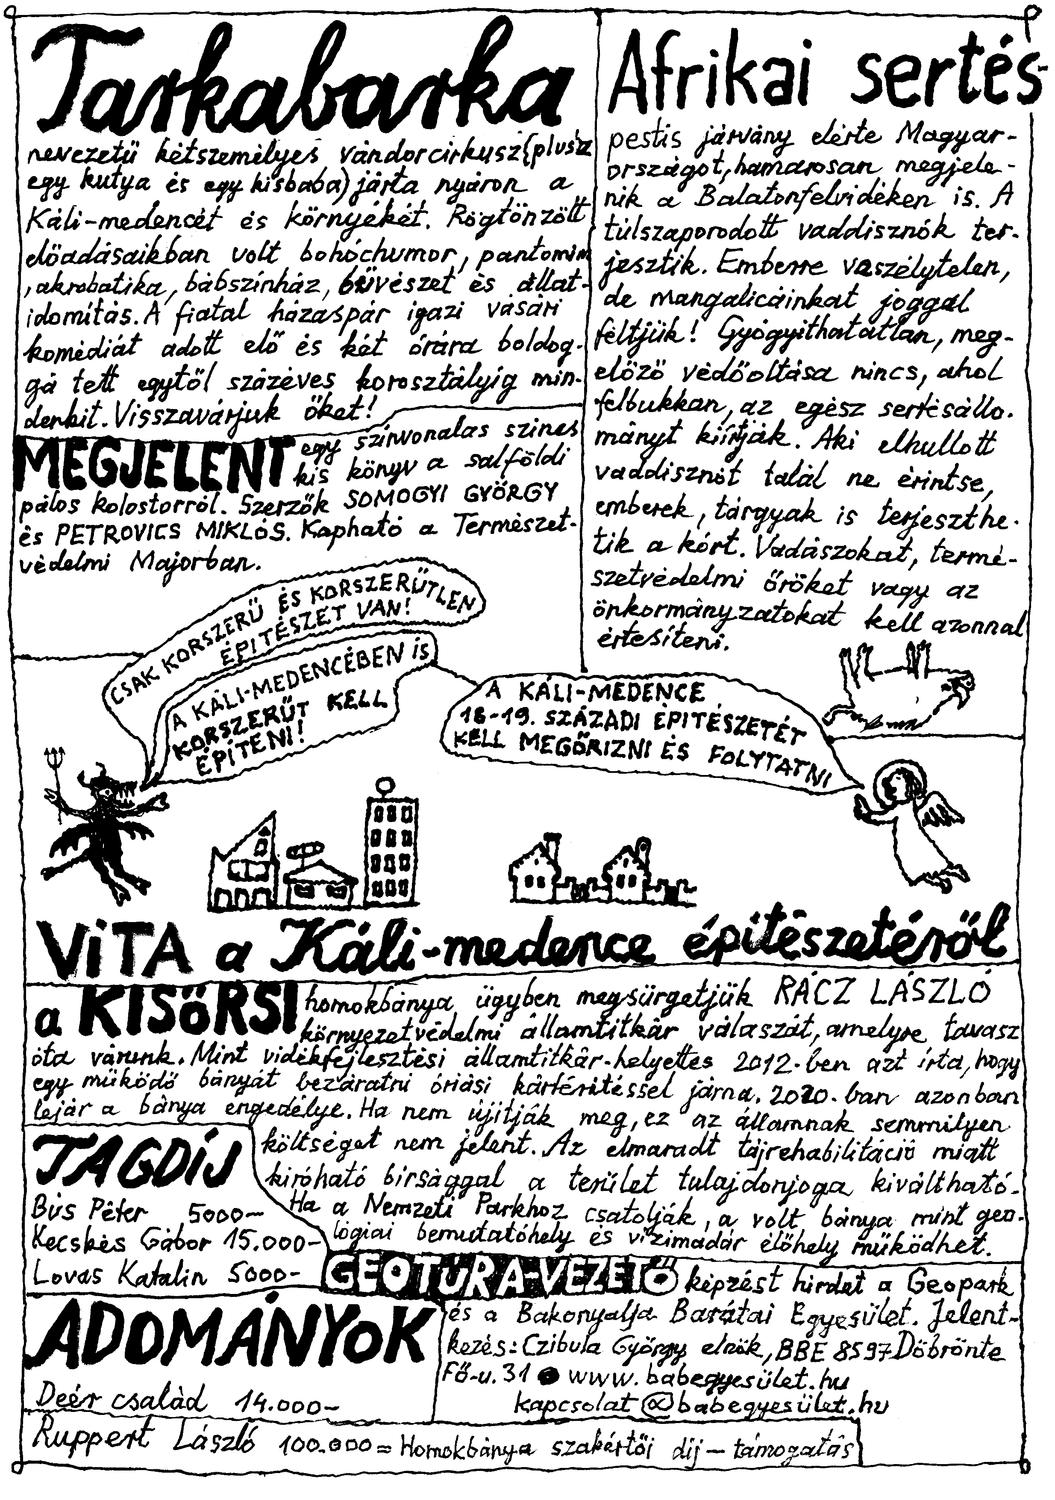 Tarkabarka
nevezetű kétszemélyes vándorcirkusz (plusz
egy kutya és egy kisbaba) járta nyáron a
Káli-medencét és környékét. Rögtönzött
előadásaikban volt bohóchumor, pantomim
, akrobatika, bábszínház, bűvészet és állat-
idomítás. A fiatal házaspár igazi vásári
komédiát adott elő és két órára boldog-
gá tett egytől százéves korosztályig min-
denkit. Visszavárjuk őket!
MEGJELENT egy színvonalas színes
kis könyv a salföldi
pálos kolostorról. Szerzők SOMOGYI GYÖRGY
és PETROVICS MIKLÓS. Kapható a Természet-
védelmi Majorban.
Afrikai sertés-
pestis járvány elérte Magyar-
országot, hamarosan megjele-
nik a Balatonfelvidéken is. A
túlszaporodott vaddisznók ter-
jesztik. Emberre veszélytelen,
de mangalicáinkat joggal
féltjük! Gyógyíthatatlan, meg-
előző védőoltása nincs, ahol
felbukkan, az egész sertésállo-
mányt kiírtják. Aki elhullott
vaddisznót talál ne érintse,
emberek, tárgyak is terjeszthe-
tik a kórt. Vadászokat, termé-
szetvédelmi őröket vagy az
önkormányzatokat kell azonnal
értesíteni.
CSAK KORSZERŰ ÉS KORSZERŰTLEN
ÉPÍTÉSZET VAN!
A KÁLI-MEDENCÉBEN IS
KORSZERŰT KELL
ÉPÍTENI!
A KÁLI-MEDENCE
18-19. SZÁZADI ÉPÍTÉSZETÉT
KELL MEGŐRIZNI ÉS FOLYTATNI
ViTA a Káli-medence építészetéről
a KISŐRSI homokbánya ügyben megsürgetjük RÁCZ LÁSZLÓ
környezetvédelmi államtitkár válaszát, amelyre tavasz
óta várunk. Mint vidékfejlesztési államtitkár-helyettes 2012-ben azt írta, hogy
egy működő bányát bezáratni óriási kártérítéssel járna. 2020-ban azonban
lejár a bánya engedélye. Ha nem újítják meg, ez az államnak semmilyen
költséget nem jelent. Az elmaradt tájrehabilitáció miatt
kiróható bírsággal a terület tulajdonjoga kiváltható.
Ha a Nemzeti Parkhoz csatolják, a volt bánya mint geo-
lógiai bemutatóhely és vízimadár élőhely működhet.
TAGDÍJ
Bús Péter 5000-
Kecskés Gábor 15.000-
Lovas Katalin 5000-
GEOTÚRA-VEZETŐ képzést hirdet a Geopark
és a Bakonyalja Barátai Egyesület. Jelent-
kezés: Czibula György elnök, BBE 8597 Döbrönte
Fő-u. 31 ● www.babegyesület.hu
kapcsolat@babegyesület.hu
ADOMÁNYOK
Deér család 14.000-
Ruppert László 100.000 = Homokbánya szakértői díj - támogatás